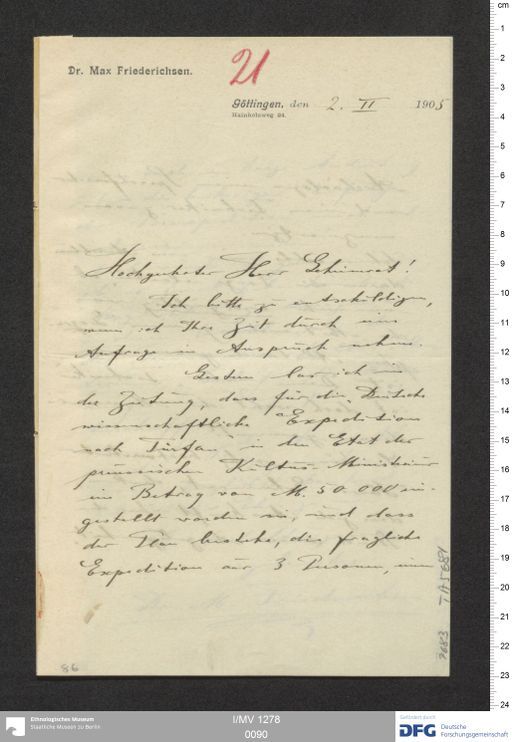 21
Dr. Max Friederichsen.
Göttingen, den 2. II 1905
Hainholzweg 34.
Hochgeehrter Herr Geheimrat!
Ich bitte zu entschuldigen,
wenn ich Ihre Zeit durch eine
Anfrage in Anspruch nehme.
Gestern las ich in
der Zeitung, dass für die Deutsche
wissenschaftliche Expedition
nach Turfan in den Etat des
preussischen Kultus-Ministeriums
ein Betrag von M. 50 000 ein-
gestellt worden sei, und dass
der Plan bestehe, die fragliche
Expedition aus 3 Personen, einem
TA 5681
7683
86
Ethnologisches Museum
Staatliche Museen zu Berlin
I/MV 1278
0090
Gefördert durch
DFG Deutsche
Forschungsgemeinschaft
cm
1
2
3
4
5
6
7
8
9
10
11
12
13
14
15
16
17
18
19
20
21
22
23
24